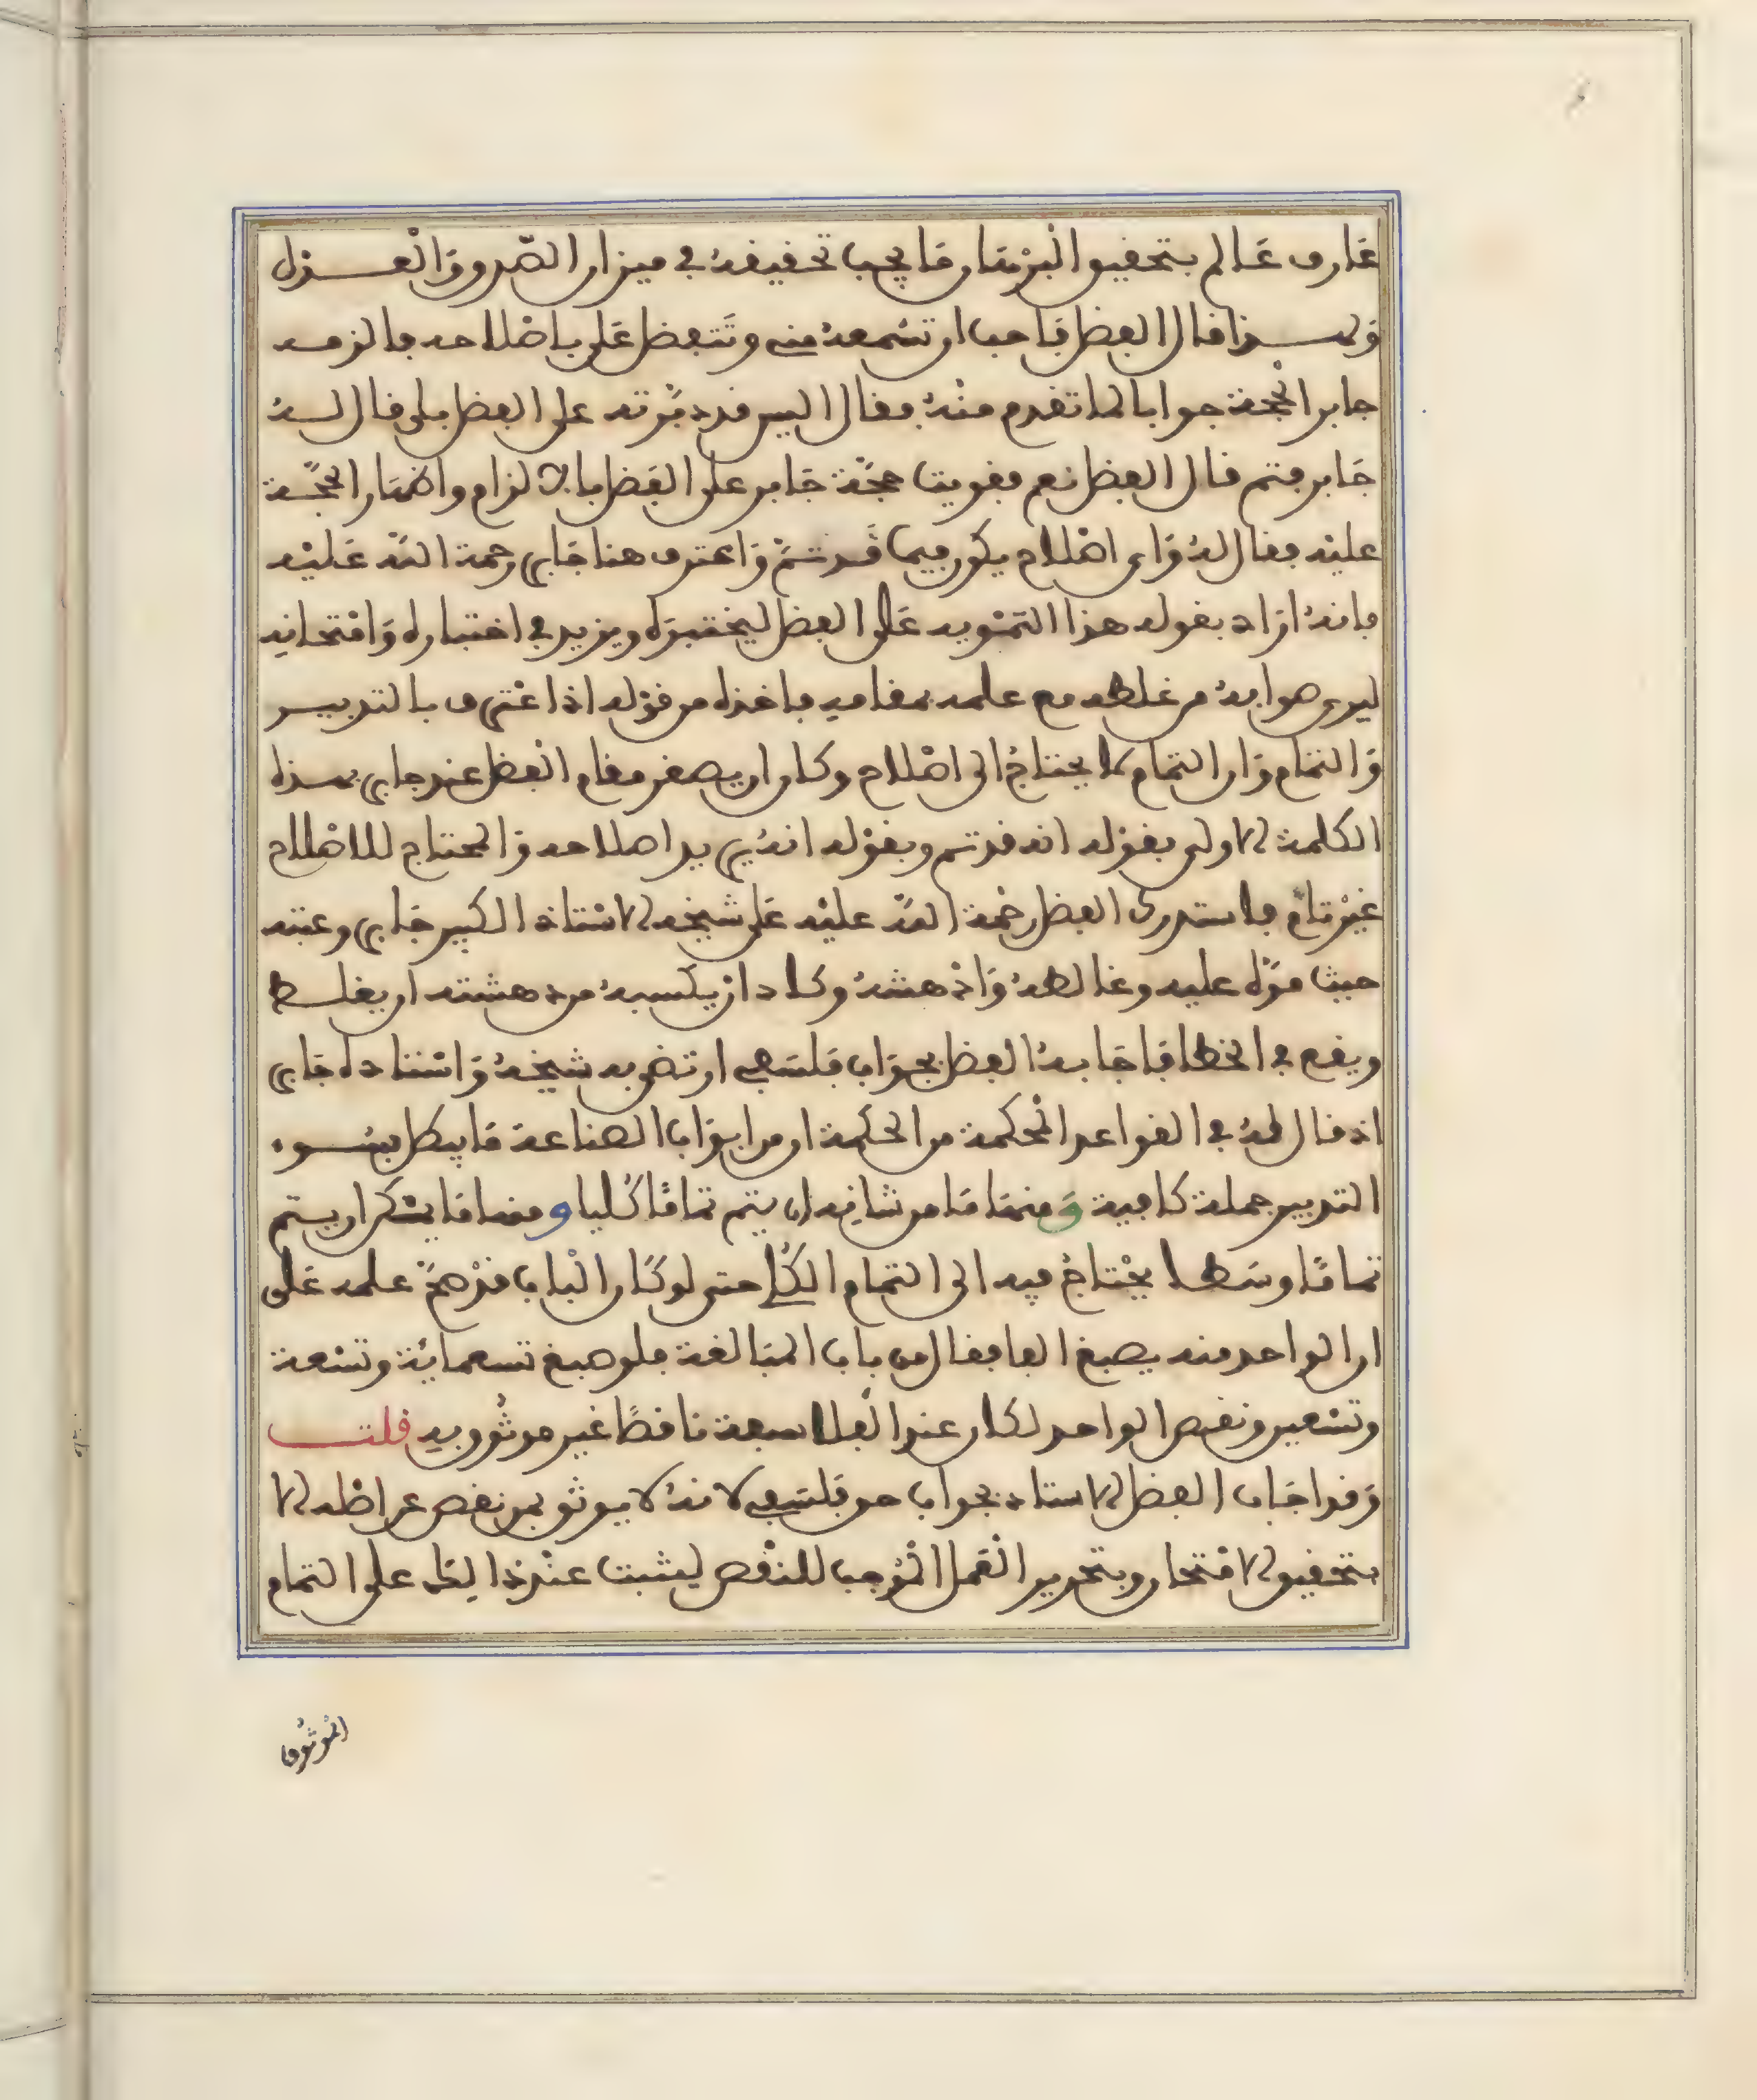 عارف عالم بتحقيق البرهان ما يجب تحقيقه في ميزان الصدق والعدل
ولهذا قال الفضل فاحب ان تسمعه مني وتتفضل علي باصلاحه فالزمه
جابر الحجة جوابا لما تقدم منه فقال اليس قد دبرته على الفضل بلى قال له
جابر فتم قال الفضل نعم فقويت حجة جابر على الفضل بالالزام واظهار الحجة
عليه فقال له واى اصلاح يكون فيما قد تم واعترف هنا جابر رحمة الله عليه
فانه اراد بقوله هذا التمويه على الفضل ليختبره ويزيد في اختباره وامتحانه
ليرى صوابه من غلطه مع علمه بمقاميه فاخذه من قوله اذا عترف بالتدبير
والتمام وان التمام لا يحتاج الى اصلاح وكان ان يصغر مقام الفضل عند جابر بهذه
الكلمة الاولى بقوله انه قد تم وبقوله انه يريد اصلاحه والمحتاج للاصلاح
غير تام فاستدرك الفضل رحمة الله عليه على شيخه الاستاذ الكبير جابر وعتبه
حيث موه عليه وغالطه وادهشه وكاد ان يكسبه من دهشته ان يغلط
ويقع في الخطا فاجابه الفضل بجواب فلسفي ارتضى به شيخه واستاده جابر
اذ قال له في القواعد المحكمة من الحكمة ان من ابواب الصناعة ما يبطل بسوء
التدبير جملة كافية ومنها ما من شانه ان يتم تماما كليا ومنها ما يمكن ان يتم
تماما وسطا يحتاج فيه الى التمام الكلي حتى لو كان الباب قد صح علمه على
ان الواحد منه يصبغ الفا فقال من باب المبالغة فلو صبغ تسعماية وتسعة
وتسعين ونقص الواحد لكان عند الفلاسفة ناقصا غير موثوق به قلت
وقد اجاب الفضل الاستاد بجواب حق فلسفي لانه لا يوثق بمن نقص عن اصله الا
بتحقيق الامتحان وبتحرير العمل الموجب للنقص ليثبت عند ذالك على التمام
الموثوق